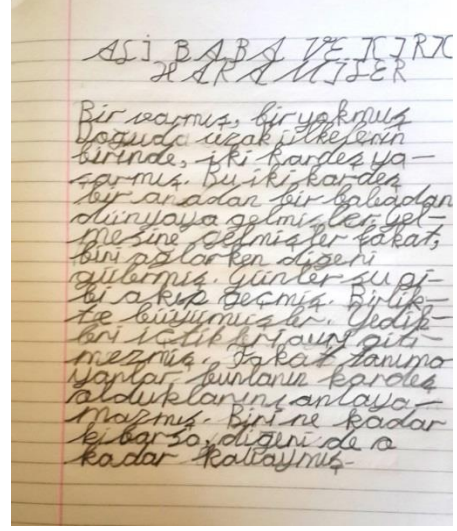 ALİ BABA VE KIRK
HARAMİLER
Bir varmış, bir yokmuş
Doğuda uzak ülkelerin
birinde, iki kardeş ya-
şarmış. Bu iki kardeş
bir anadan bir babadan
dünyaya gelmişler gel-
mesine gelmişler fakat,
biri ağlarken diğeri
gülermiş. Günler su gi-
bi akıp geçmiş. Birlik-
te büyümüşler. Yedik-
leri içtikleri ayrı gitmezmiş. Fakat tanıma
yanlar bunların kardeş
olduklarını anlaya-
mazmış. Biri ne kadar
kibarsa, diğeri de o
kadar kabaymış.